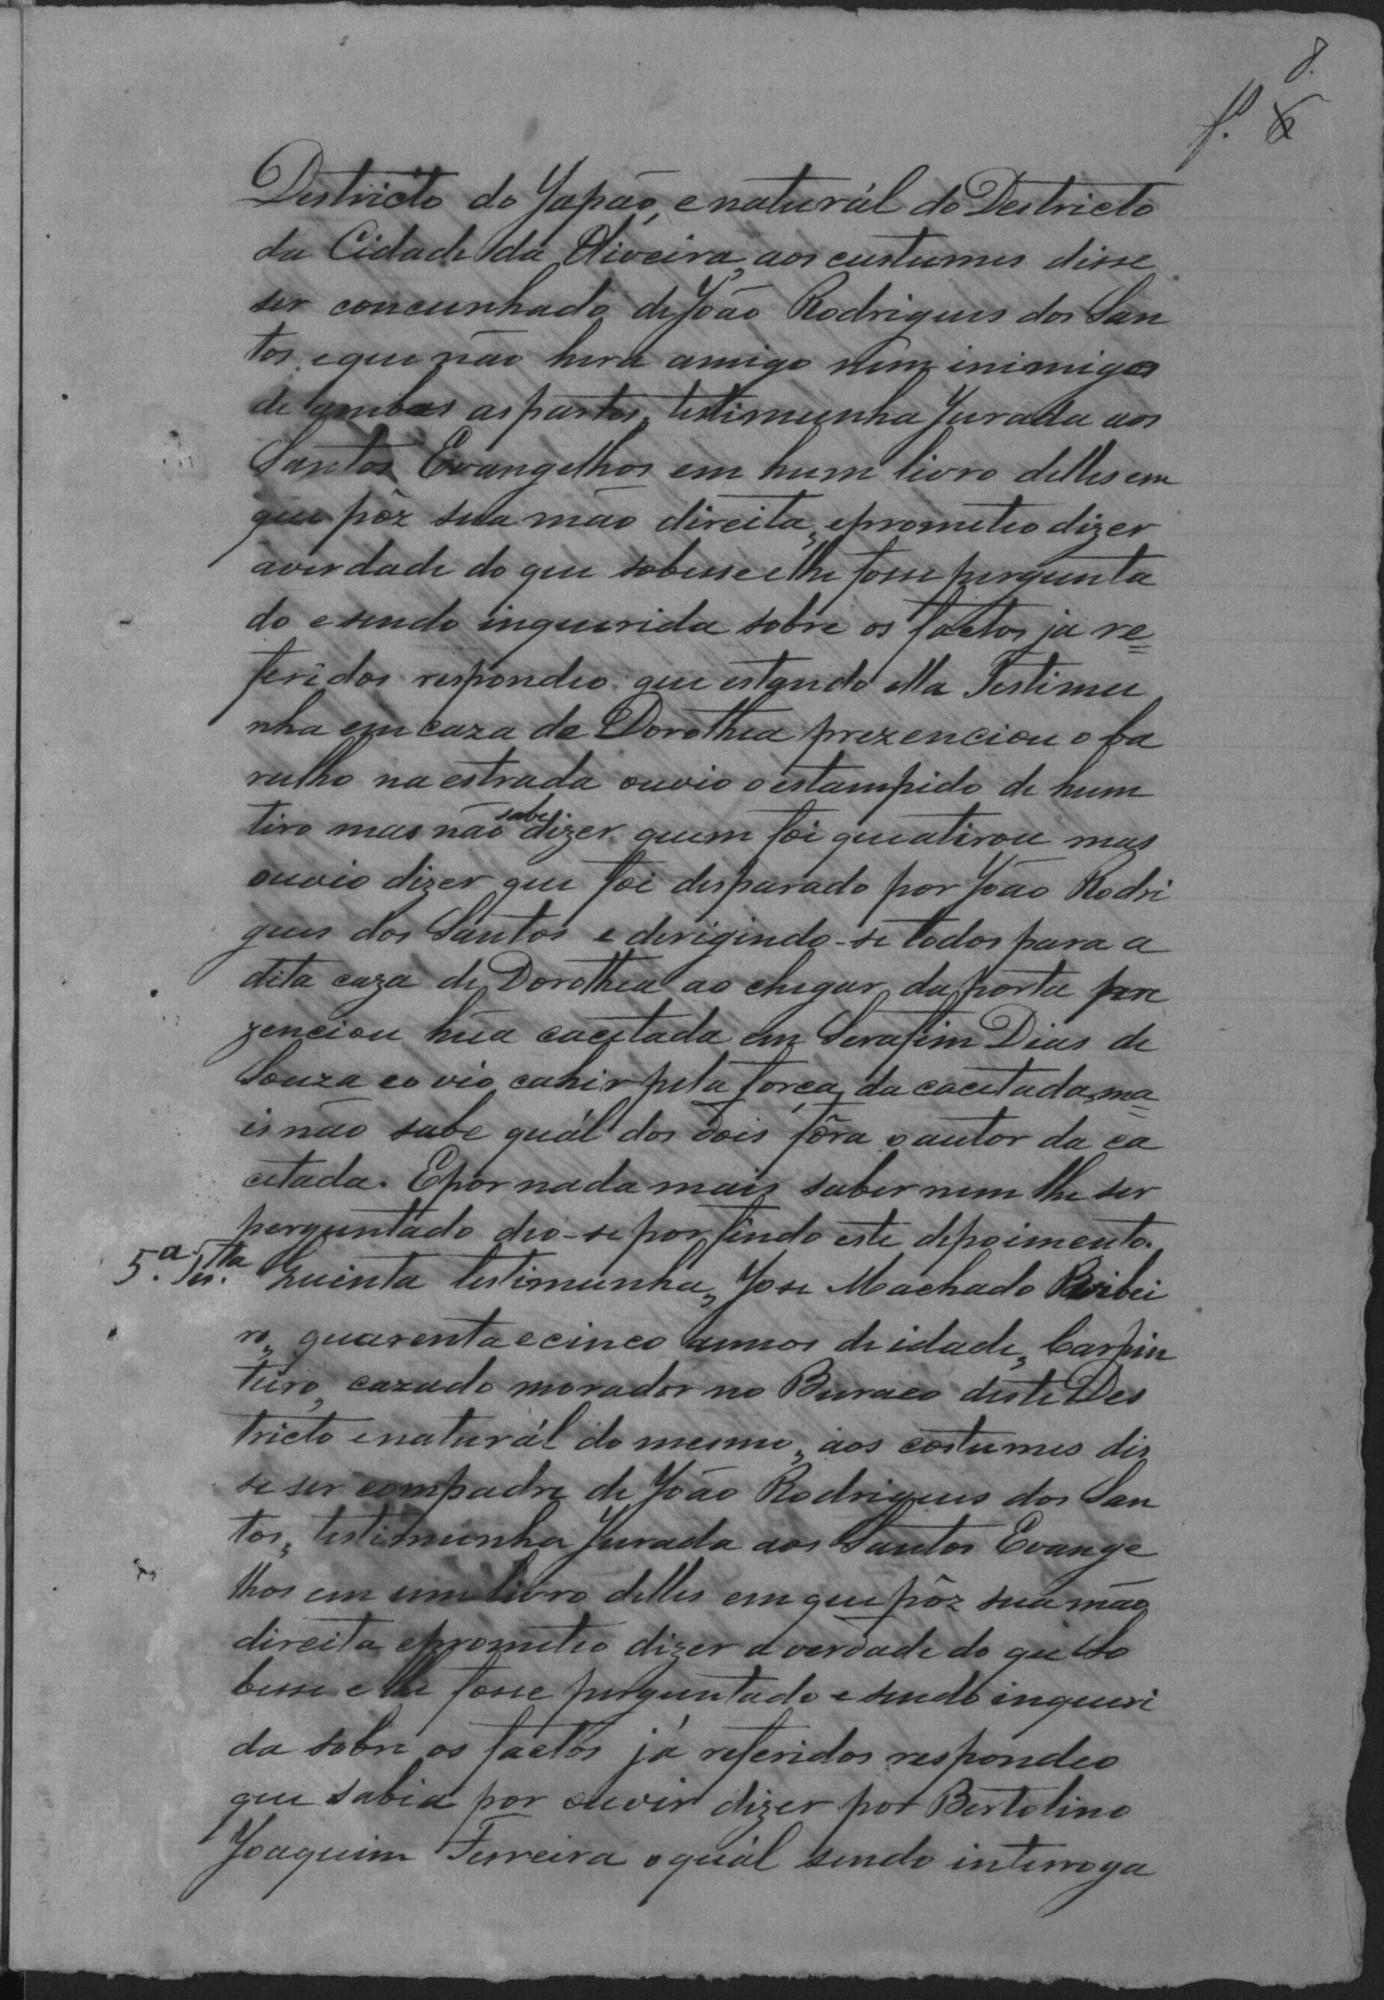 8.
f. 6
Destricto do Japão, e naturál do Destricto
da Cidade da Oliveira, aos custumes disse
ser concunhado de João Rodrigues dos San
tos e que não hera amigo nem inimigos
de ambas as partes, testimunha Jurada aos
Santos Evangelhos em hum livro delles em
que pôz sua mão direita, e prometeo dizer
a verdade do que sobesse e lhe fosse pergunta
do e sendo inquerida sobre os factos já re=
feridos respondeo que estando ella Testimu
nha em caza de Dorothea prezenciou o ba
rulho na estrada ouvio o estampido de hum
tiro mas não sabe dizer quem foi que atirou mas
ouvio dizer que foi desparado por João Rodri
gues dos Santos e derigindo-se todos para a
dita caza de Dorothea ao chegar da porta pre
zenciou hũa cacetada em Serafim Dias de
Souza e o vio cahir pela força da cacetada, ma=
is não sabe quál dos dois fôra o autor da ca
cetada. E por nada mais saber nem lhe ser
perguntado deo-se por findo este depoimento.
5.ª Tes.ta Quinta testimunha, Jose Machado Ribei
ro, quarenta e cinco annos de idade, Carpin
teiro, cazado morador no Buraco deste Des
tricto e naturál do mesmo, aos costumes dis
se ser compadre de João Rodrigues dos San
tos, testimunha Jurada aos Santos Evange
lhos em um livro delles em que pôz sua mão
direita e prometeo dizer a verdade do que so
besse e lhe fosse perguntado e sendo inqueri
da sobre os factos já referidos respondeo
que sabia por ouvir dizer por Bertolino
Joaquim Ferreira o quál sendo interroga